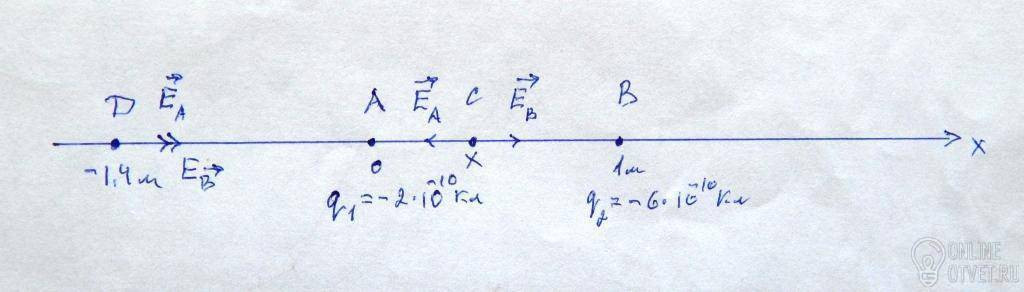 D E_A A E_A C E_B B
-1,4м E_B 0 x 1м x
q₁ = -2·10⁻¹⁰ Кл q₂ = -6·10⁻¹⁰ Кл
ONLINE
OTVET.RU